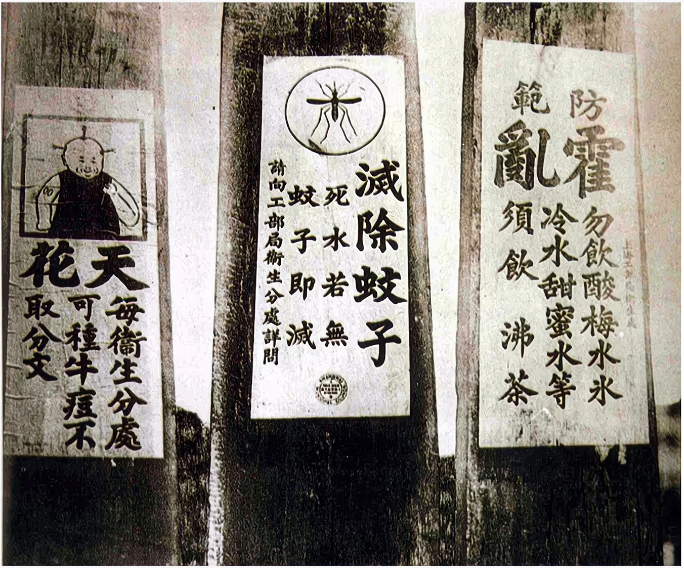 防範
霍亂
勿飲酸梅水氷
冷水甜蜜水等
須飲沸茶
滅除蚊子
死水若無
蚊子即滅
請向工部局衞生分處詳問
天花
每衞生分處
可種牛痘不
取分文